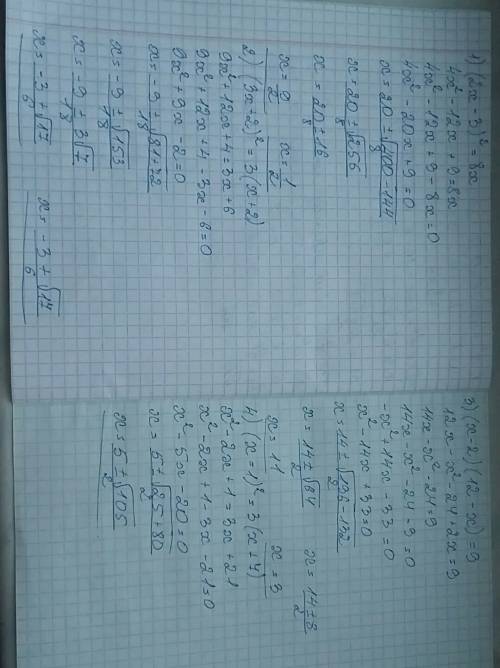 1) (2x-3)² = 8x
4x² - 12x + 9 = 8x
4x² - 12x + 9 - 8x = 0
4x² - 20x + 9 = 0
x = (20 ± √(400-144))/8
x = (20 ± √256)/8
x = (20 ± 16)/8
x = 9/2 x = 1/2
2) (3x+2)² = 3(x+2)
9x² + 12x + 4 = 3x + 6
9x² + 12x + 4 - 3x - 6 = 0
9x² + 9x - 2 = 0
x = (-9 ± √(81+72))/18
x = (-9 ± √153)/18
x = (-9 ± 3√17)/18
x = (-3 + √17)/6 x = (-3 ± √17)/6
3) (x-2)(12-x) = 9
12x - x² - 24 + 2x = 9
14x - x² - 24 = 9
14x - x² - 24 - 9 = 0
-x² + 14x - 33 = 0
x² - 14x + 33 = 0
x = (14 ± √(196-132))/2
x = (14 ± √64)/2 x = (14 ± 8)/2
x = 11 x = 3
4) (x-1)² = 3(x+7)
x² - 2x + 1 = 3x + 21
x² - 2x + 1 - 3x - 21 = 0
x² - 5x - 20 = 0
x = (5 ± √(25+80))/2
x = (5 ± √105)/2